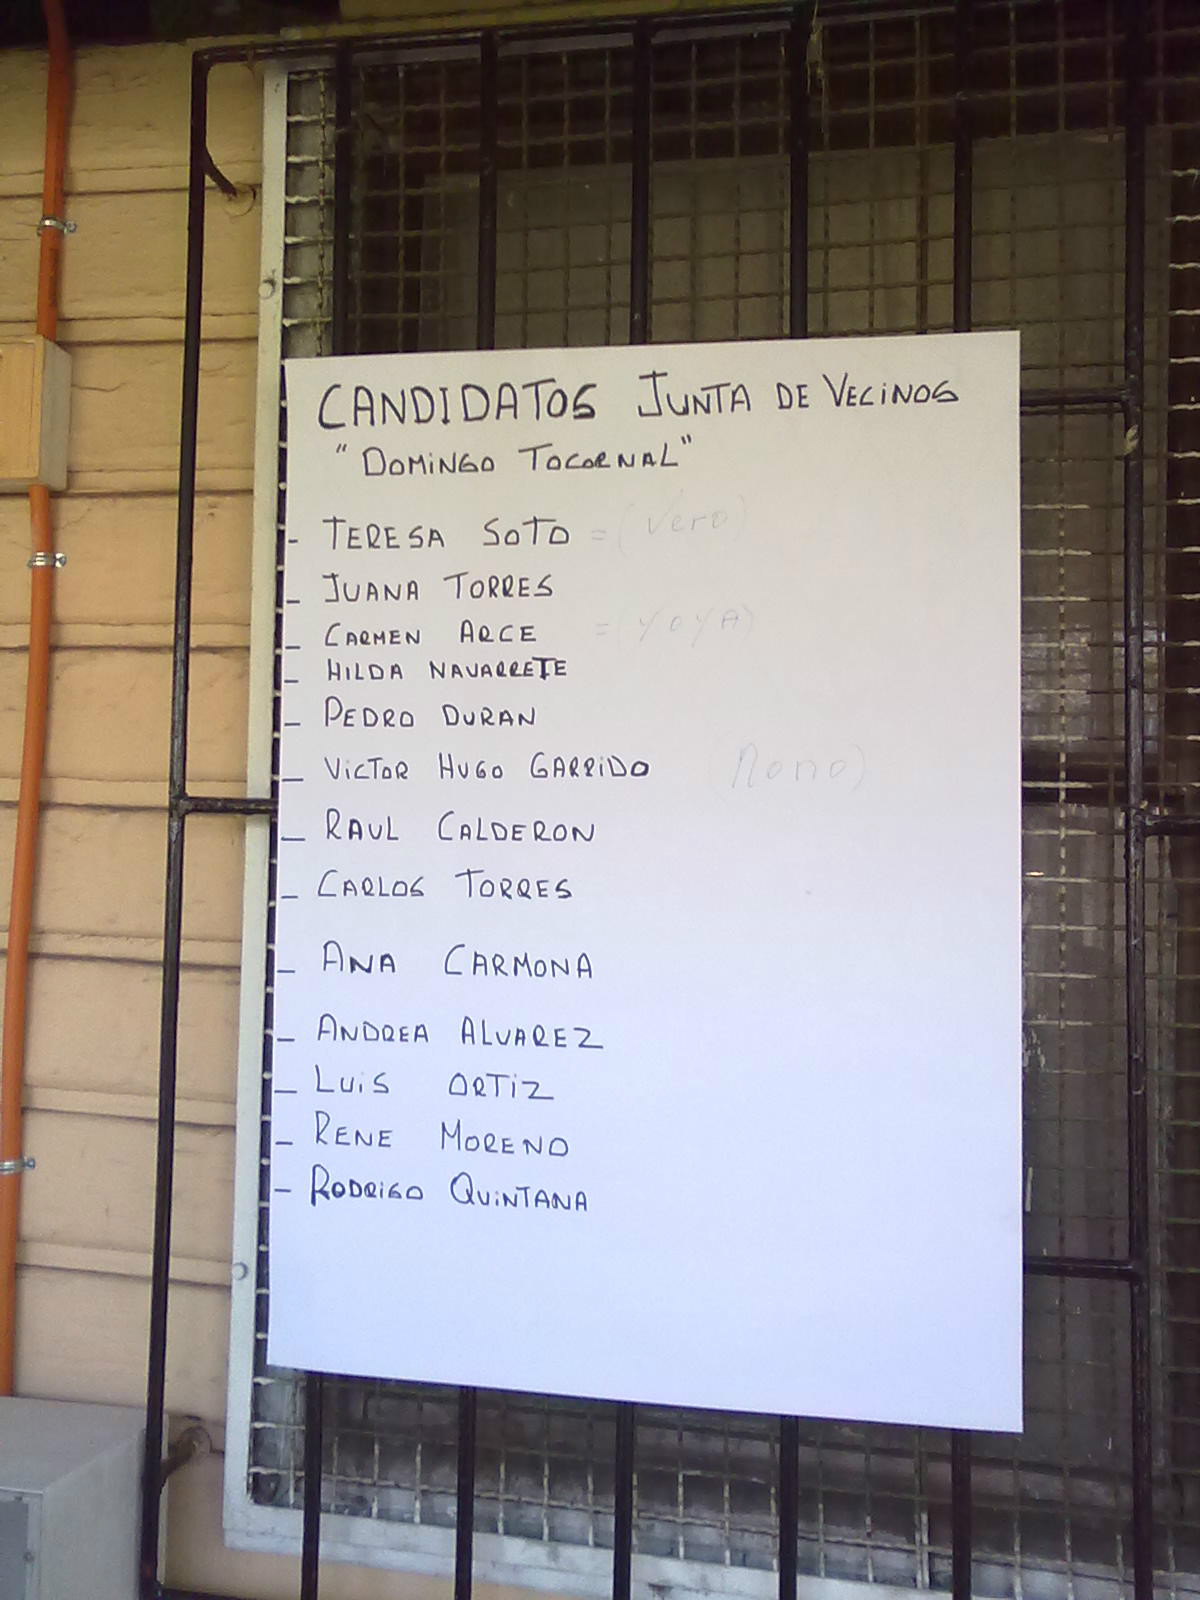 CANDIDATOS JUNTA DE VECINOS
"DOMINGO TOCORNAL"
- TERESA SOTO = (Vero)
- JUANA TORRES
- CARMEN ARCE = (YOYA)
- HILDA NAVARRETE
- PEDRO DURAN
- VICTOR HUGO GARRIDO (Nono)
- RAUL CALDERON
- CARLOS TORRES
- ANA CARMONA
- ANDREA ALVAREZ
- LUIS ORTIZ
- RENE MORENO
- RODRIGO QUINTANA